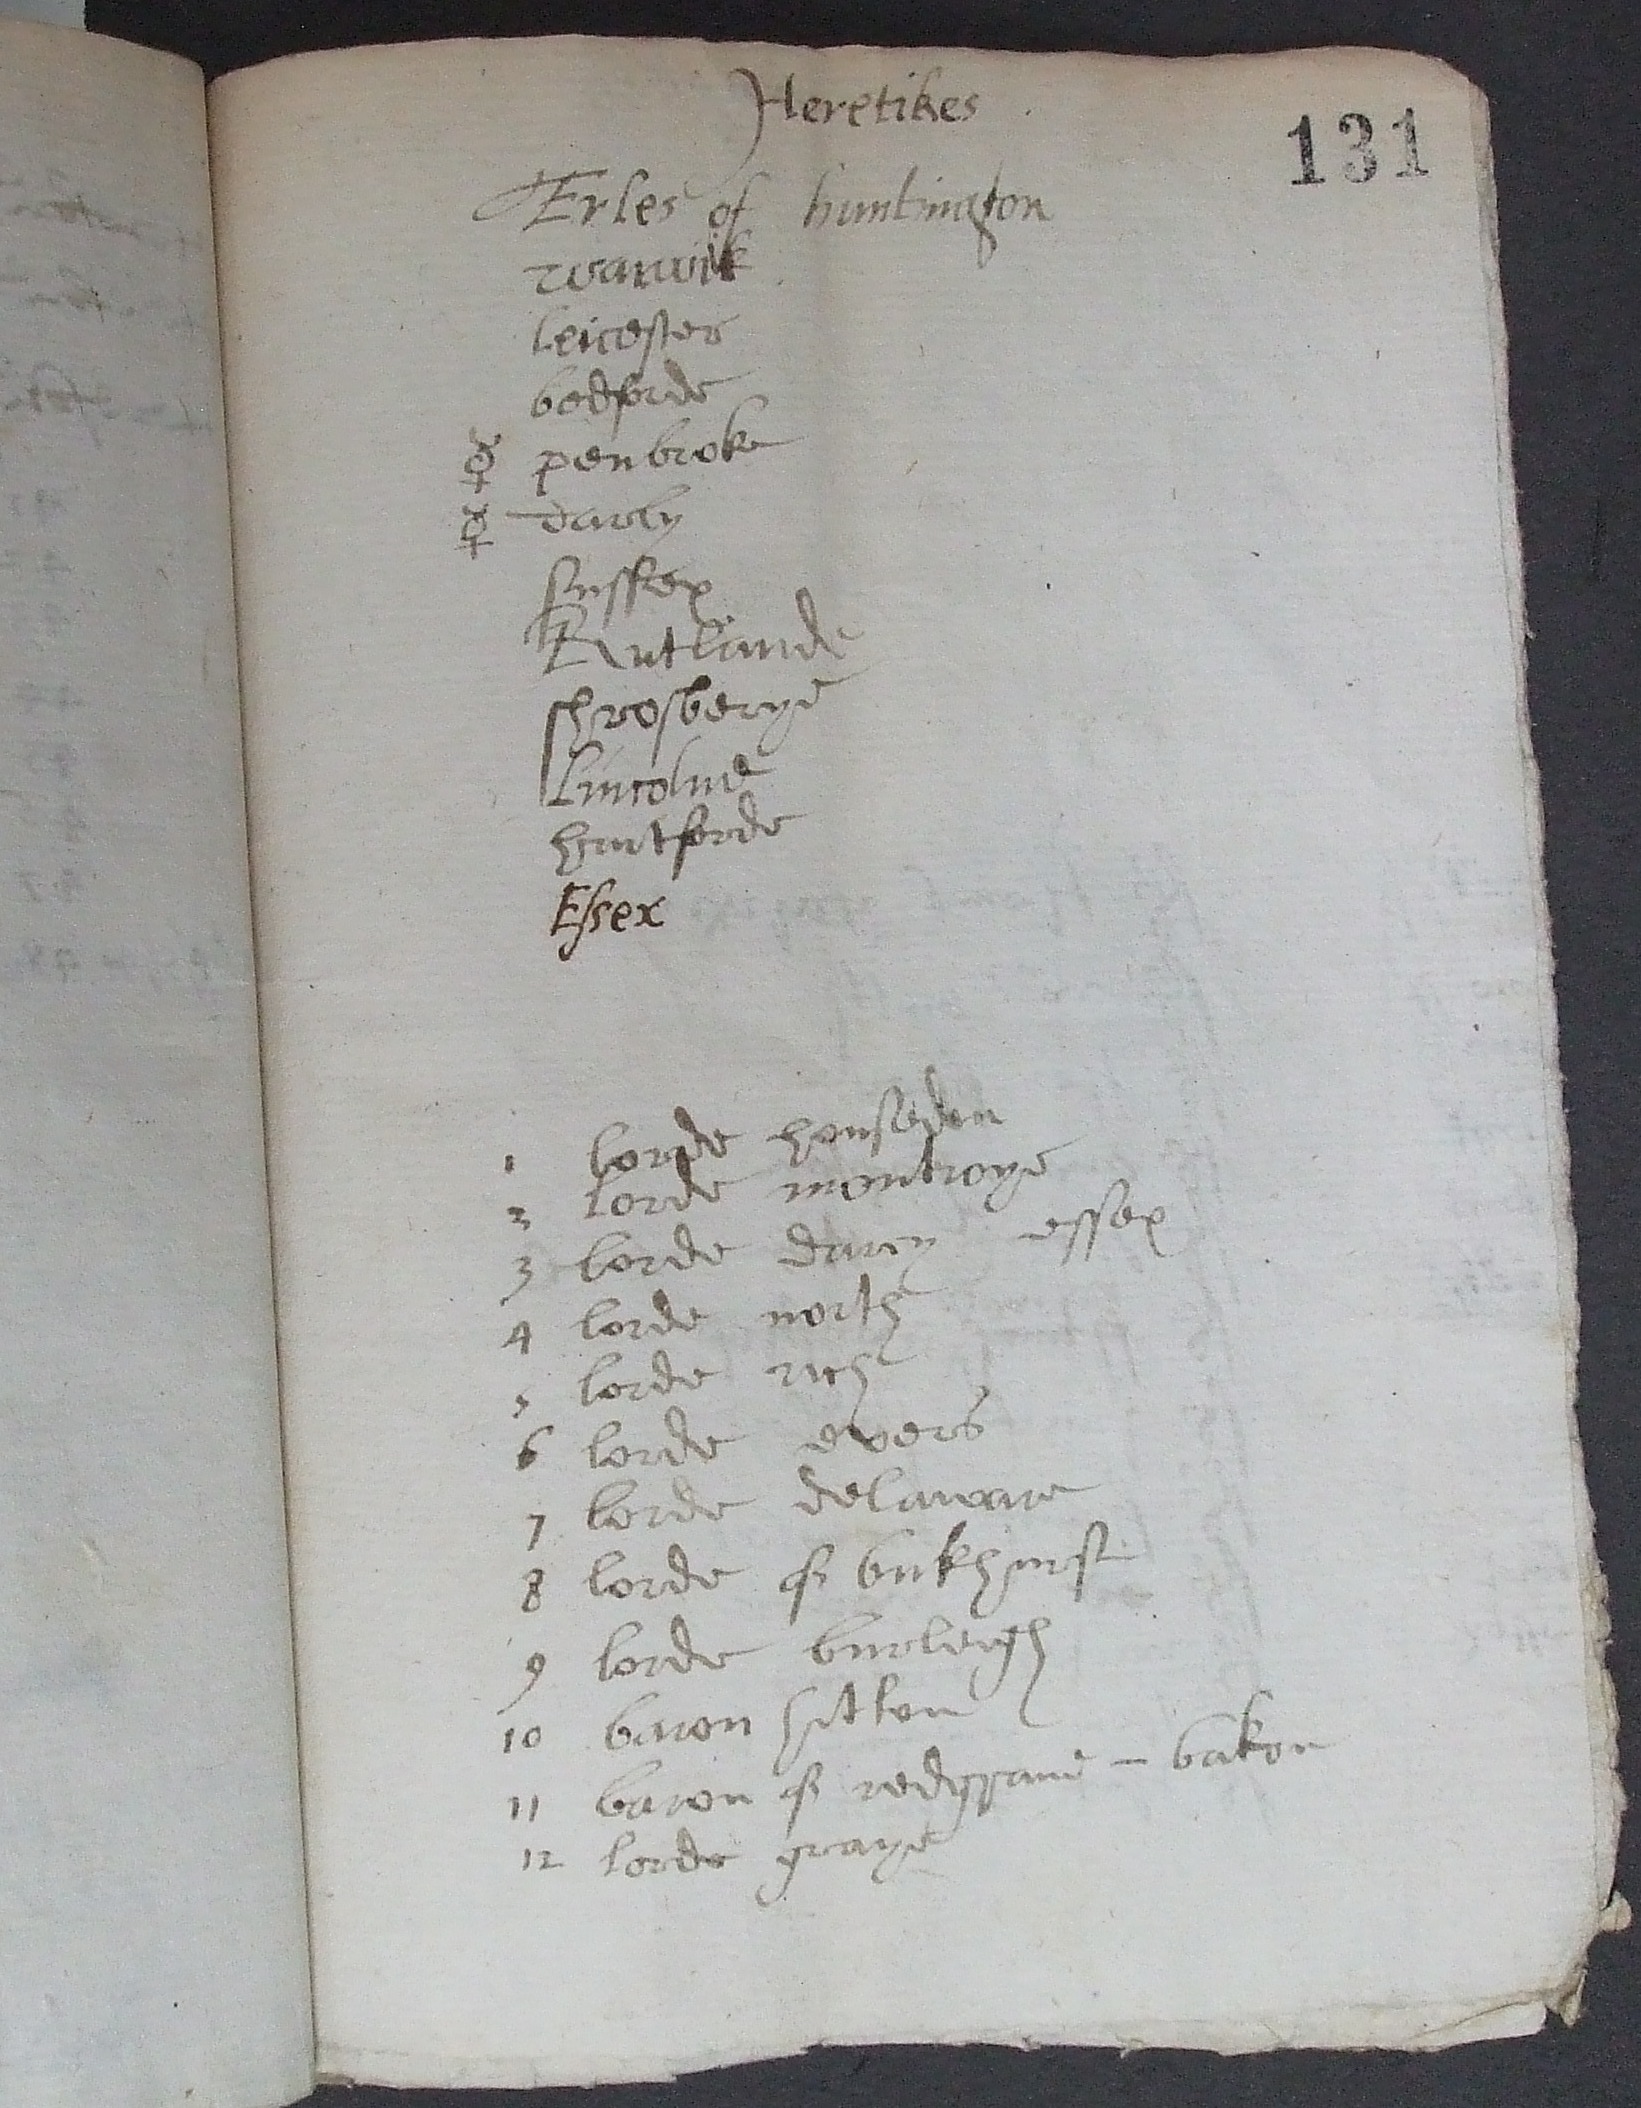 Heretikes
131
Erles of huntington
warwik
leicester
bedforde
☿ penbroke
☿ darby
sussex
Rutlande
shrosberye
Lincolne
hartforde
Essex
1 lorde honseden
2 lorde montioye
3 lorde darcy essex
4 lorde north
5 lorde rich
6 lorde evers
7 lorde delaware
8 lorde of bukhurst
9 lorde burleigh
10 baron hilton
11 baron of redgrave - bakon
12 lorde graye